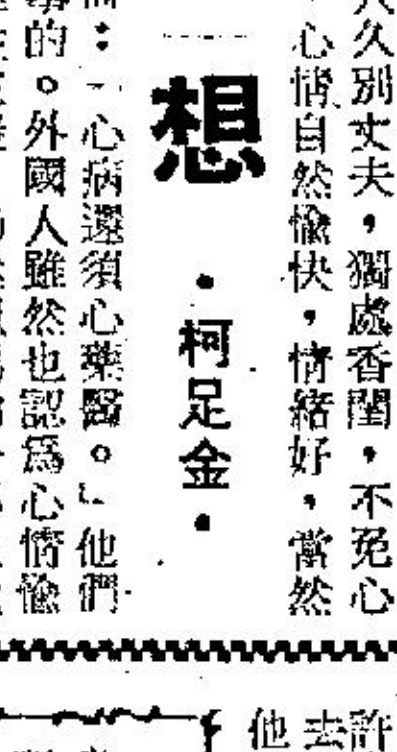 久別丈夫，獨處香閨，不免心
心情自然愉快，情緒好，當然
想
·柯足金·
：「心病還須心藥醫。」他們
的。外國人雖然也認為心情愉
許
去
他